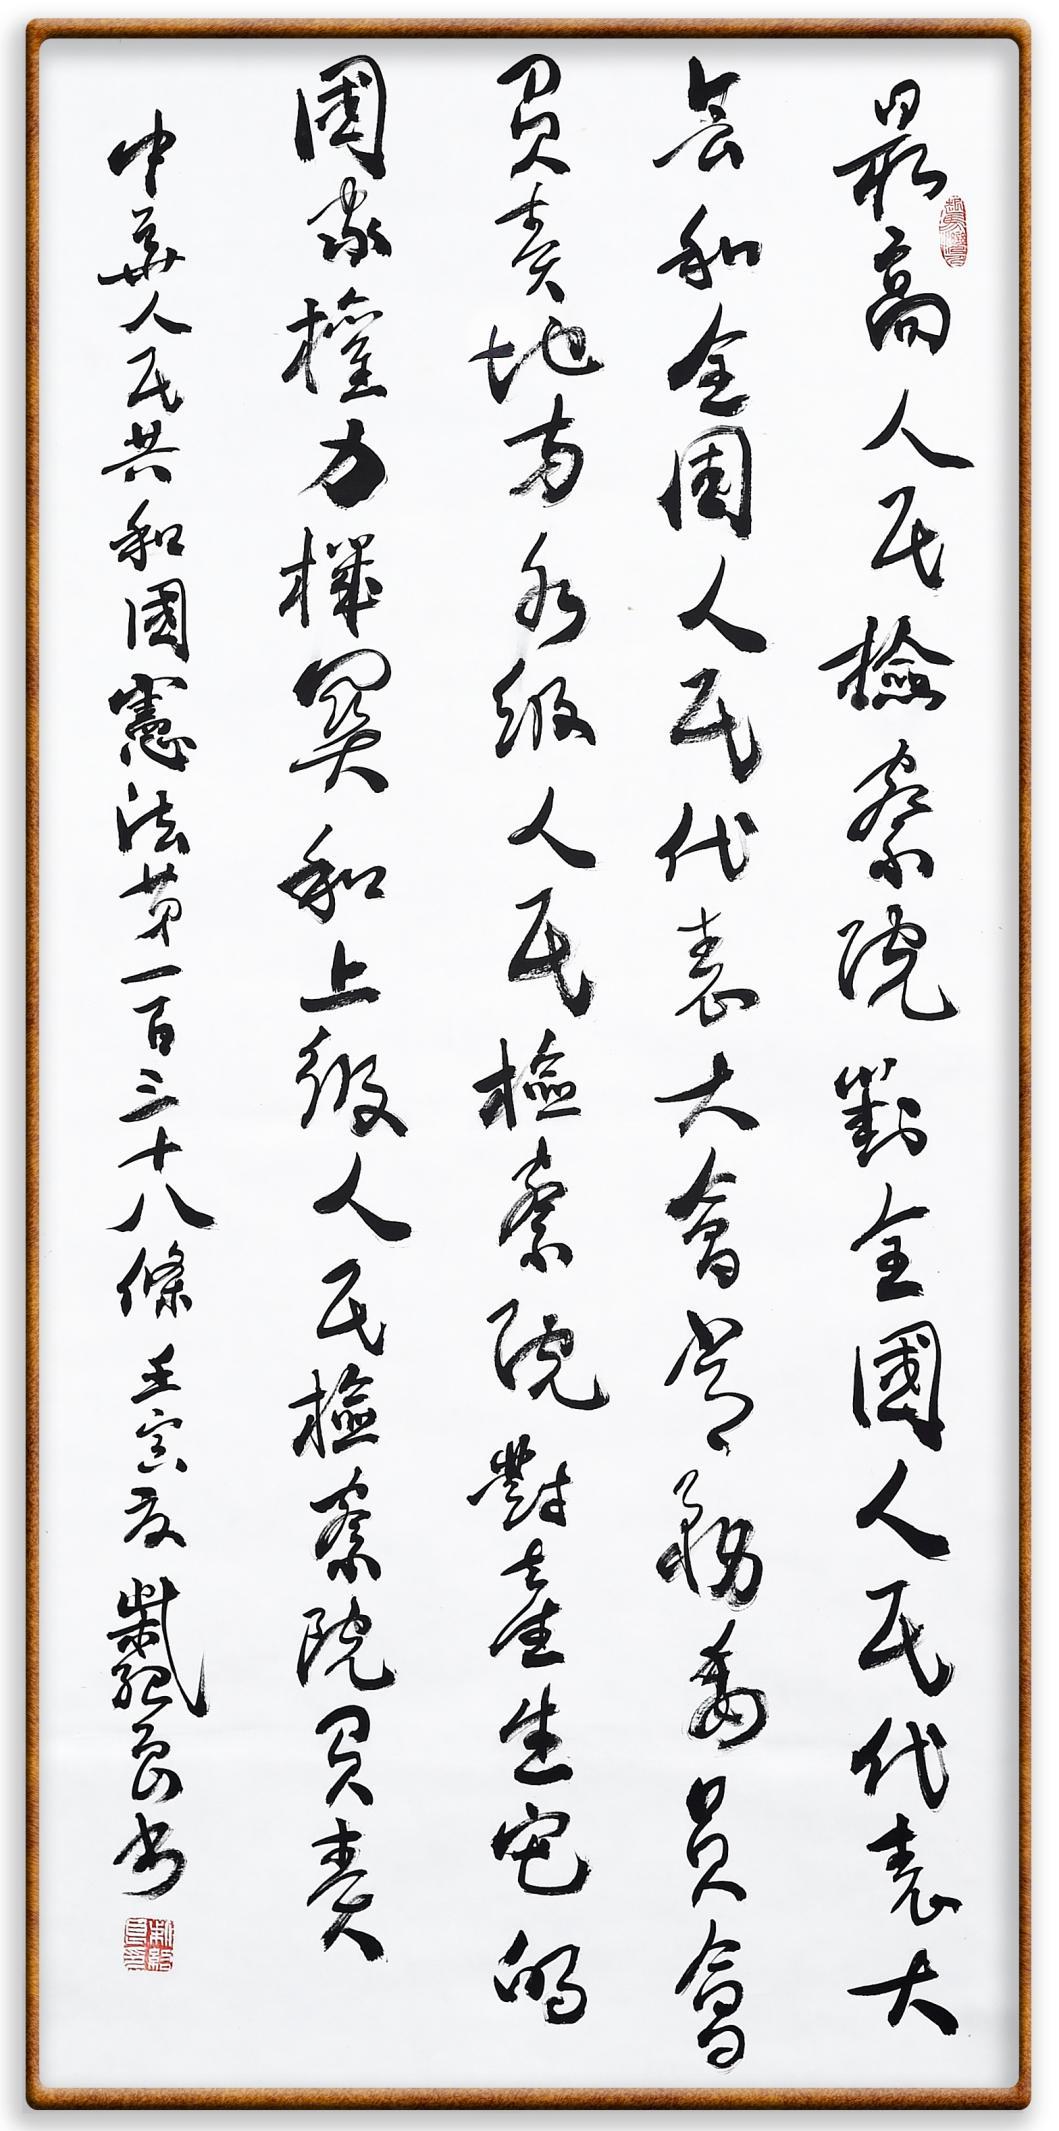 最高人民檢察院對全國人民代表大
会和全国人民代表大會常務委員會
负责地方各级人民檢察院對產生它的
國家權力機関和上级人民檢察院负责
中華人民共和國憲法第一百三十八條壬寅夏戴紹良书